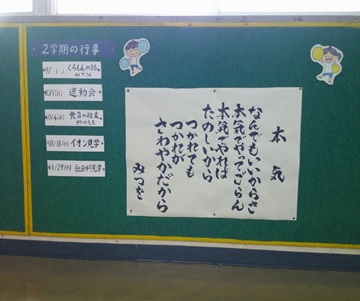 2学期の行事
運動会
イオン見学
社会科見学
本気
なんでもいいからさ
本気でやってごらん
本気でやれば
たのしいから
つかれても
つかれが
さわやかだから
みつを